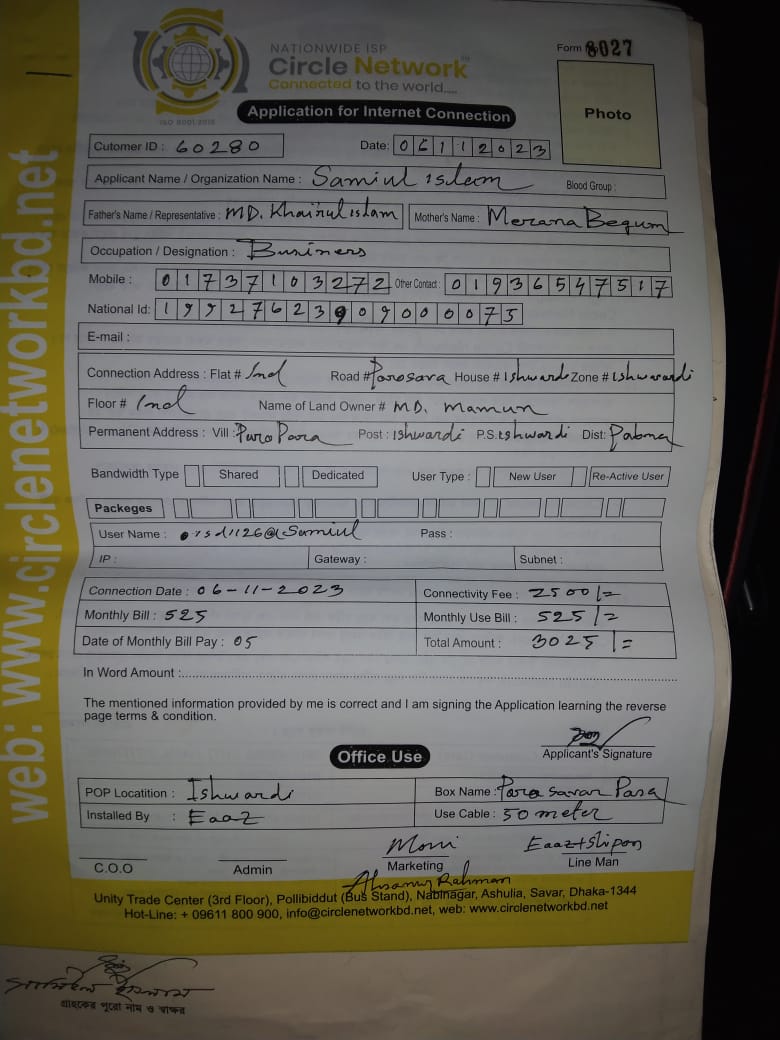 NATIONWIDE ISP
Circle Network
Connected to the world....
ISO 9001:2015
Form 8027
Application for Internet Connection
Photo
Cutomer ID : 60280
Date: 06112023
Applicant Name / Organization Name : Samiul islam
Blood Group :
Father's Name / Representative : MD. Khairul islam
Mother's Name : Merana Begum
Occupation / Designation : Business
Mobile : 01737103272
Other Contact : 01936547517
National Id: 19927623909000075
E-mail :
Connection Address : Flat # 2nd Road # Parosara House # Ishwardi Zone # Ishwarardi
Floor # 2nd Name of Land Owner # MD. mamun
Permanent Address : Vill : Puro Para Post : ishwardi P.S. ishwardi Dist: Pabna
Bandwidth Type Shared Dedicated User Type : New User Re-Active User
Packeges
User Name : isd1126@Samiul Pass :
IP : Gateway : Subnet :
Connection Date : 06-11-2023 Connectivity Fee : 2500/=
Monthly Bill : 525 Monthly Use Bill : 525/=
Date of Monthly Bill Pay : 05 Total Amount : 3025/=
In Word Amount :
The mentioned information provided by me is correct and I am signing the Application learning the reverse
page terms & condition.
Applicant's Signature
Office Use
POP Locatition : Ishwardi Box Name : Para Para
Installed By : Eaaz Use Cable : 50 meter
Moni Eaaz+Shipon
C.O.O Admin Marketing Line Man
Rahman
Unity Trade Center (3rd Floor), Pollibiddut (Bus Stand), Nabinagar, Ashulia, Savar, Dhaka-1344
Hot-Line: + 09611 800 900, info@circlenetworkbd.net, web: www.circlenetworkbd.net
web: www.circlenetworkbd.net
গ্রাহকের পুরো নাম ও স্বাক্ষর